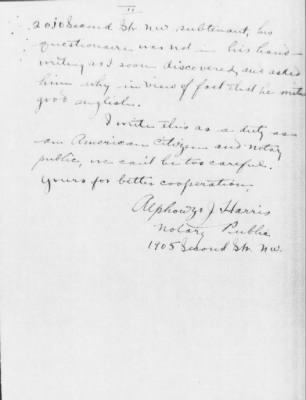 II
2010 Second St. NW subtenant, his
questionaire was not in his hand-
writing as I soon discovered, and asked
him why in view of fact that he writes
good english.
I write this as a duty as
an American Citizen and Notary
public, we can't be too careful.
Yours for better cooperation
Alphonzo J Harris
Notary Public
1905 Second St. NW.